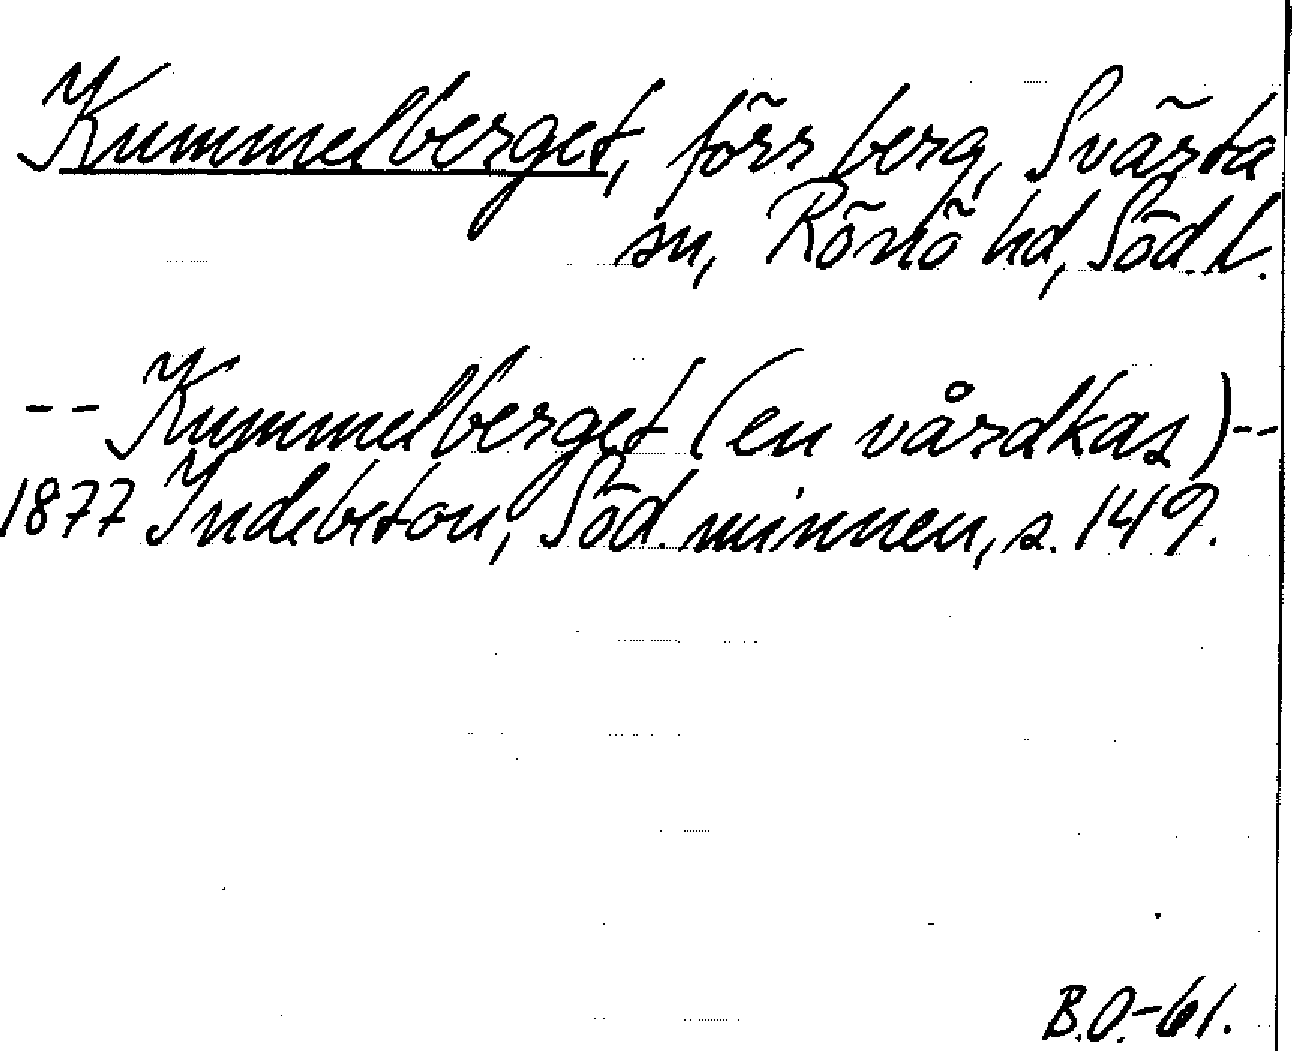 Kummelberget, förr berg, Svärta
sn, Rönö hd, Söd. l.
-- Kummelberget (en vårdkas) --
1877 Indebetou, Söd. minnen, s. 149.
B.O.-61.